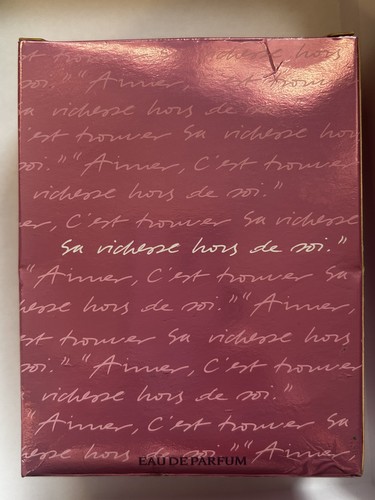 trouver sa richesse hors de
soi." "Aimer, C'est trouver
sa richesse hors de
c'est trouver sa richesse hors de
soi." "Aimer, C'est trouver sa
richesse hors de soi."
er, C'est trouver sa richesse
sa richesse hors de soi."
"Aimer, C'est trouver sa
hesse hors de soi." "Aimer,
est trouver sa richesse hors
soi." "Aimer, C'est trouver sa
richesse hors de soi."
"Aimer, C'est trouver sa
hesse hors de soi." "Aimer,
EAU DE PARFUM